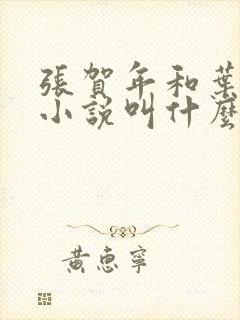 張賀年和葉
小說叫什麼
黃惠寧